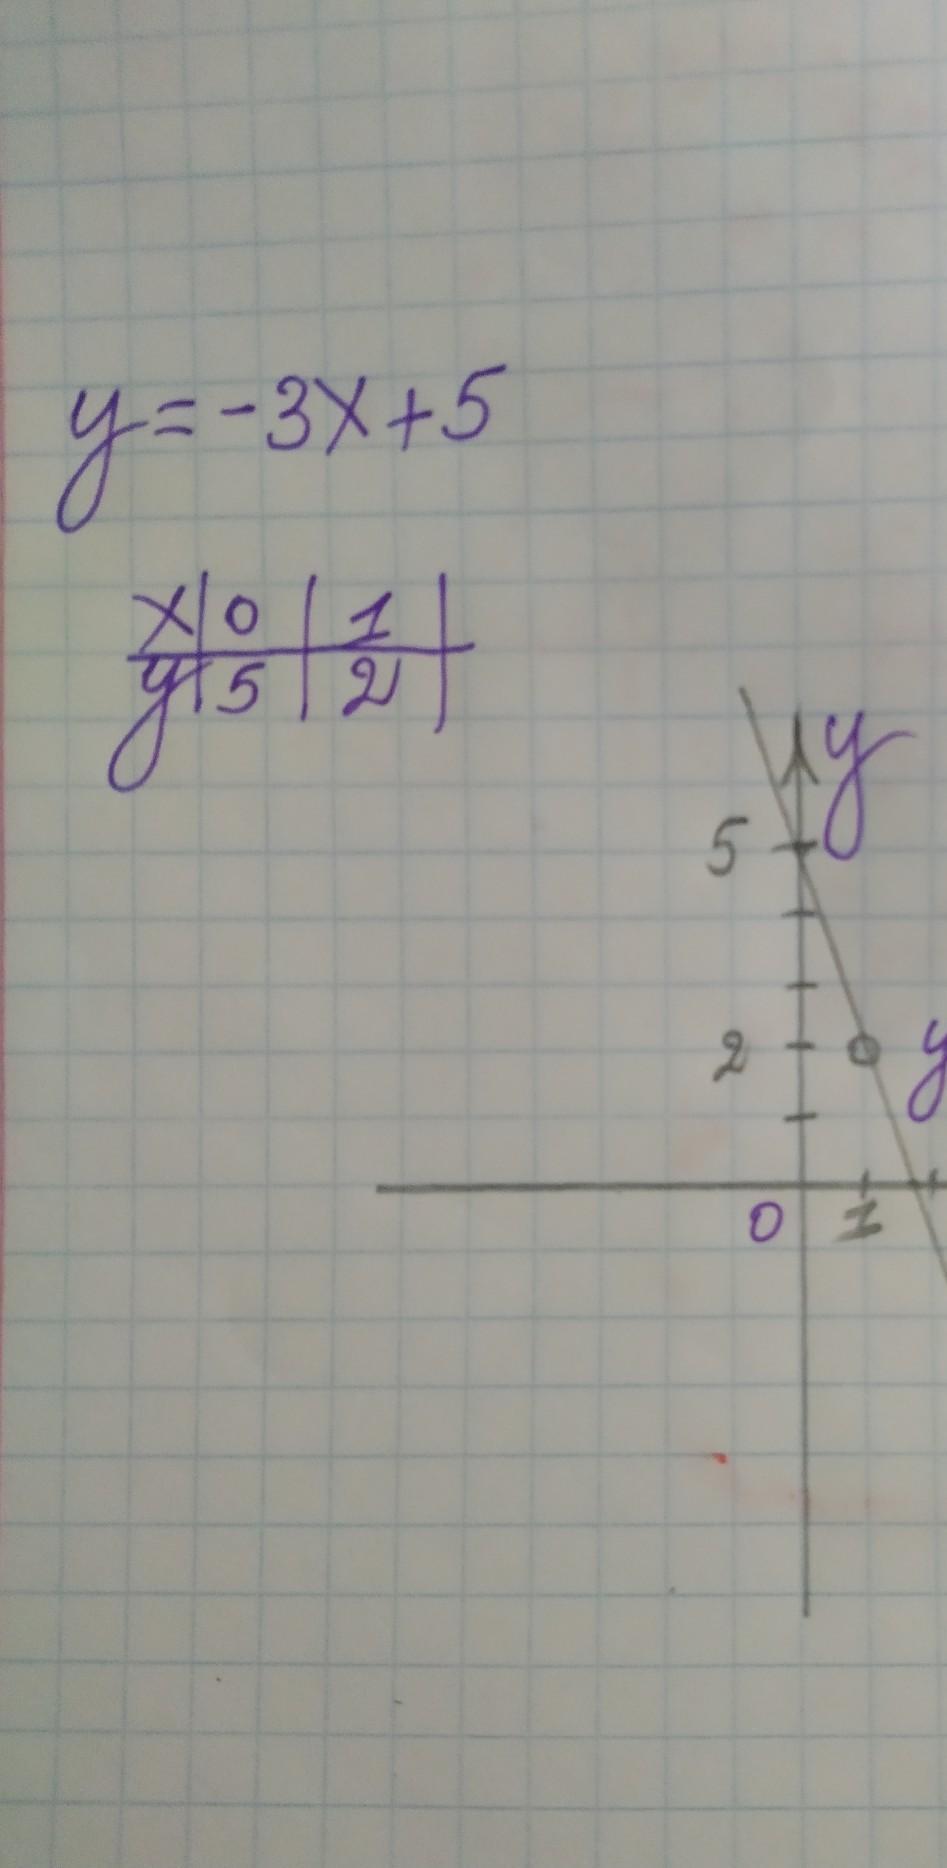 y=-3x+5
x|0|1|
y|5|2|
y
5
2
y
0 1